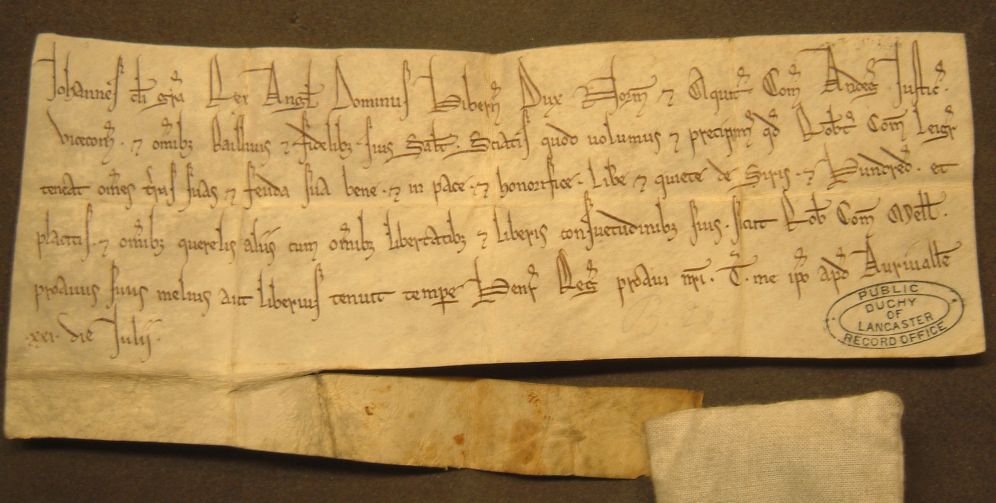 Johannes di gra Rex Angl Dominus Hibern Dux Norm ⁊ Aquit Com Andeg Justic.
vicecom . ⁊ omibz baillivis ⁊ fidelibz suis Salt . Sciatis quod volumus ⁊ precipim qd Robt Com Leigr
teneat omes tras suas ⁊ feuda sua bene . ⁊ in pace . ⁊ honorifice . libe ⁊ quiete de Siris . ⁊ Hundred . et
placitis . ⁊ omibz querelis aliis cum omibz libertatibz ⁊ liberis consuetudinibz suis . sicut Rob Com Mell .
proavus suus melius aut liberius tenuit tempe Henr Reg proavi nri . T . me ipo apd Aurivalle
.xxi. die Julij .
PUBLIC
DUCHY
OF
LANCASTER
RECORD OFFICE